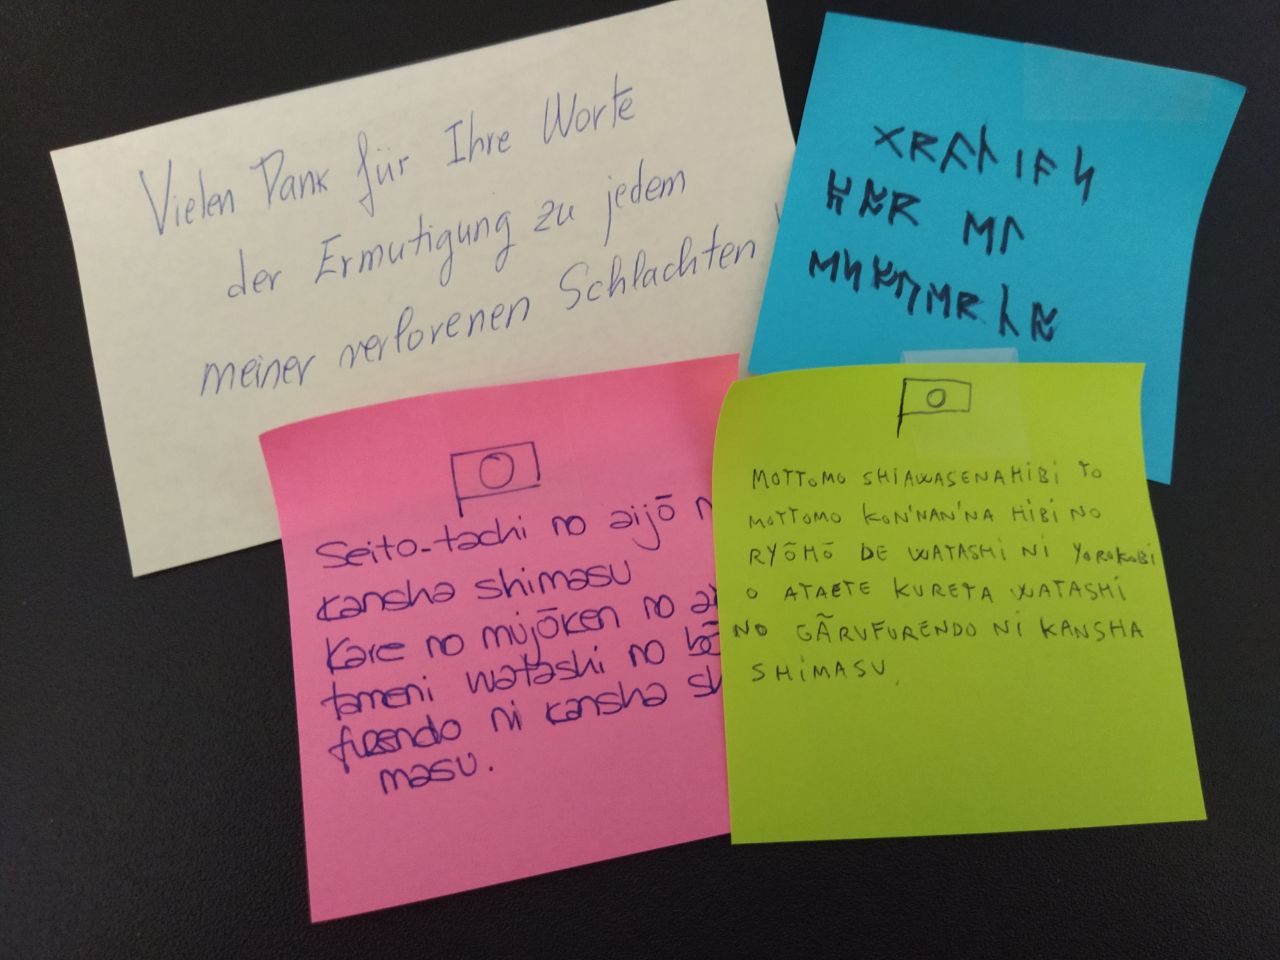 Vielen Dank für Ihre Worte
der Ermutigung zu jedem
meiner verlorenen Schlachten
Seito-tachi no aijō
kansha shimasu
Kare no mujōken no
tameni watashi no
furendo ni kansha
masu.
MOTTOMO SHIAWASENAHIBI TO
MOTTOMO KON'NAN'NA HIBI NO
RYŌHŌ DE WATASHI NI YOROKOBI
O ATAETE KURETA WATASHI
NO GĀRUFURENDO NI KANSHA
SHIMASU.